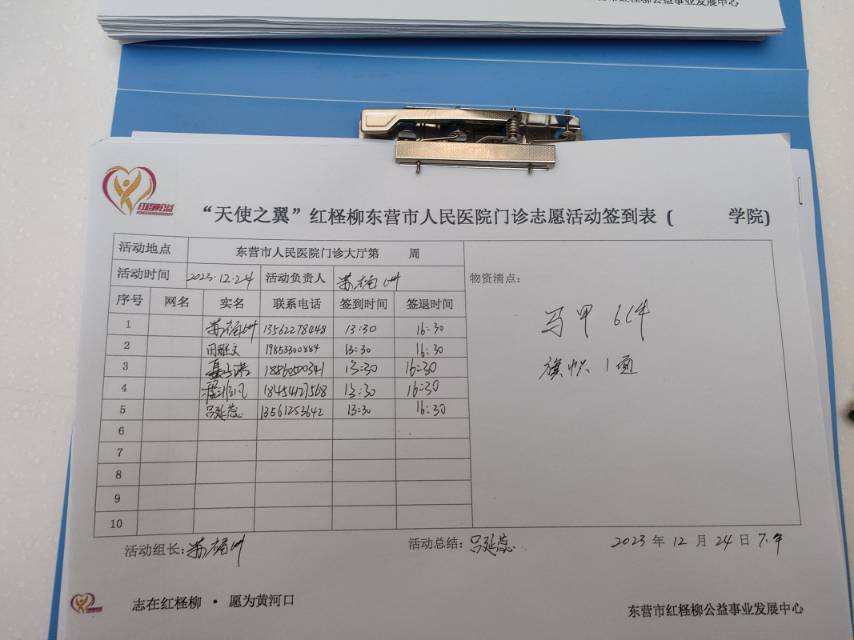 市红柽柳公益事业发展中心
红柽柳公益
“天使之翼”红柽柳东营市人民医院门诊志愿活动签到表（ 学院)
活动地点 东营市人民医院门诊大厅第 周
活动时间 2023.12.24 活动负责人
物资清点:
序号 网名 实名 联系电话 签到时间 签退时间
1 13562278048 13:30 16:30
2 田雕文 13:30 16:30
3 13:30 16:30
4 18454127568 13:30 16:30
5 吕延蕊 13561253642 13:30 16:30
6
7
8
9
10
马甲 6件
旗帜 1面
活动组长: 活动总结: 吕延蕊 2023 年 12 月 24 日 下午
志在红柽柳 · 愿为黄河口
东营市红柽柳公益事业发展中心